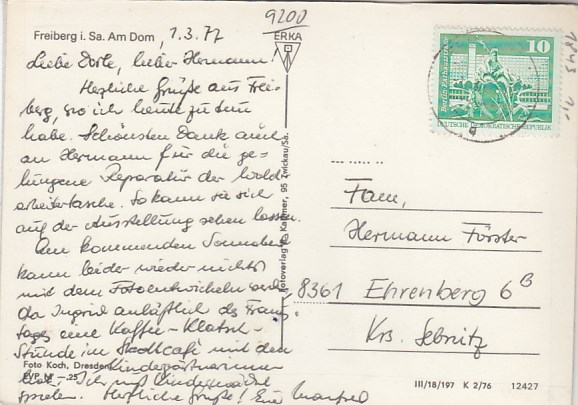 9200
Freiberg i. Sa. Am Dom, 1.3.77
ERKA
Liebe Dorle, lieber Hermann!
Herzliche Grüße aus Frei-
berg, wo ich heute zu tun
habe. Schönsten Dank auch
an Hermann für die ge-
lungene Reparatur der
arbeitertasche. So kann sie sich
auf der Ausstellung sehen lassen.
Am kommenden Sonnabend
kann leider wieder nichts
mit dem Fotoentwickeln werden
da Ingrid anläßlich des Frauen-
tages eine Kaffee-Klatsch-
Stunde im Stadtcafé mit den
Kindergärtnerinnen
hat. Ich muß Kindermädel
spielen. Herzliche Grüße! Euer Manfred
Foto Koch, Dresden
EVP M -.25
Fotoverlag K. Kallmer, 95 Zwickau/Sa.
10
Berlin Rathausstraße
DEUTSCHE DEMOKRATISCHE REPUBLIK
1843
Fam.
Hermann Förster
8361 Ehrenberg 6B
Krs. Sebnitz
III/18/197 K 2/76 12427